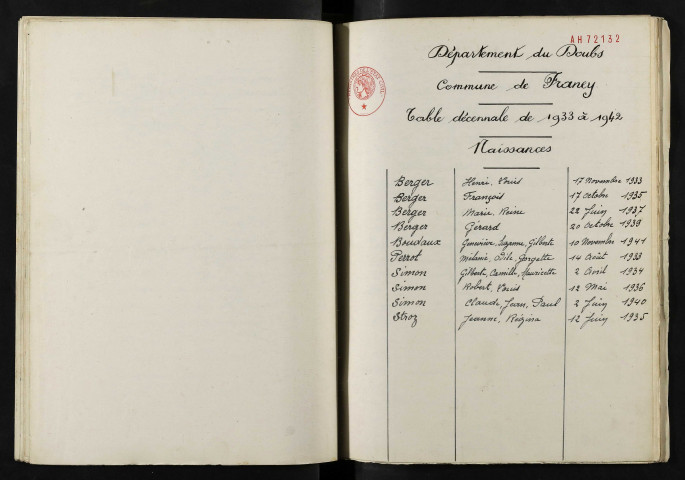 AH72132
Département du Doubs
Commune de Franey
Table décennale de 1933 à 1942
Naissances
Berger Henri, Louis 17 Novembre 1933
Berger François 17 octobre 1935
Berger Marie, Reine 22 Juin 1937
Berger Gérard 20 octobre 1939
Boudaux Geneviève, Suzanne, Gilberte 10 Novembre 1941
Perrot Mélanie, Odile, Georgette 14 Août 1933
Simon Gilbert, Camille, Mauricette 2 Avril 1934
Simon Robert, Louis 12 Mai 1936
Simon Claude, Jean, Paul 2 Juin 1940
Stroz Jeanne, Régina 12 Juin 1935